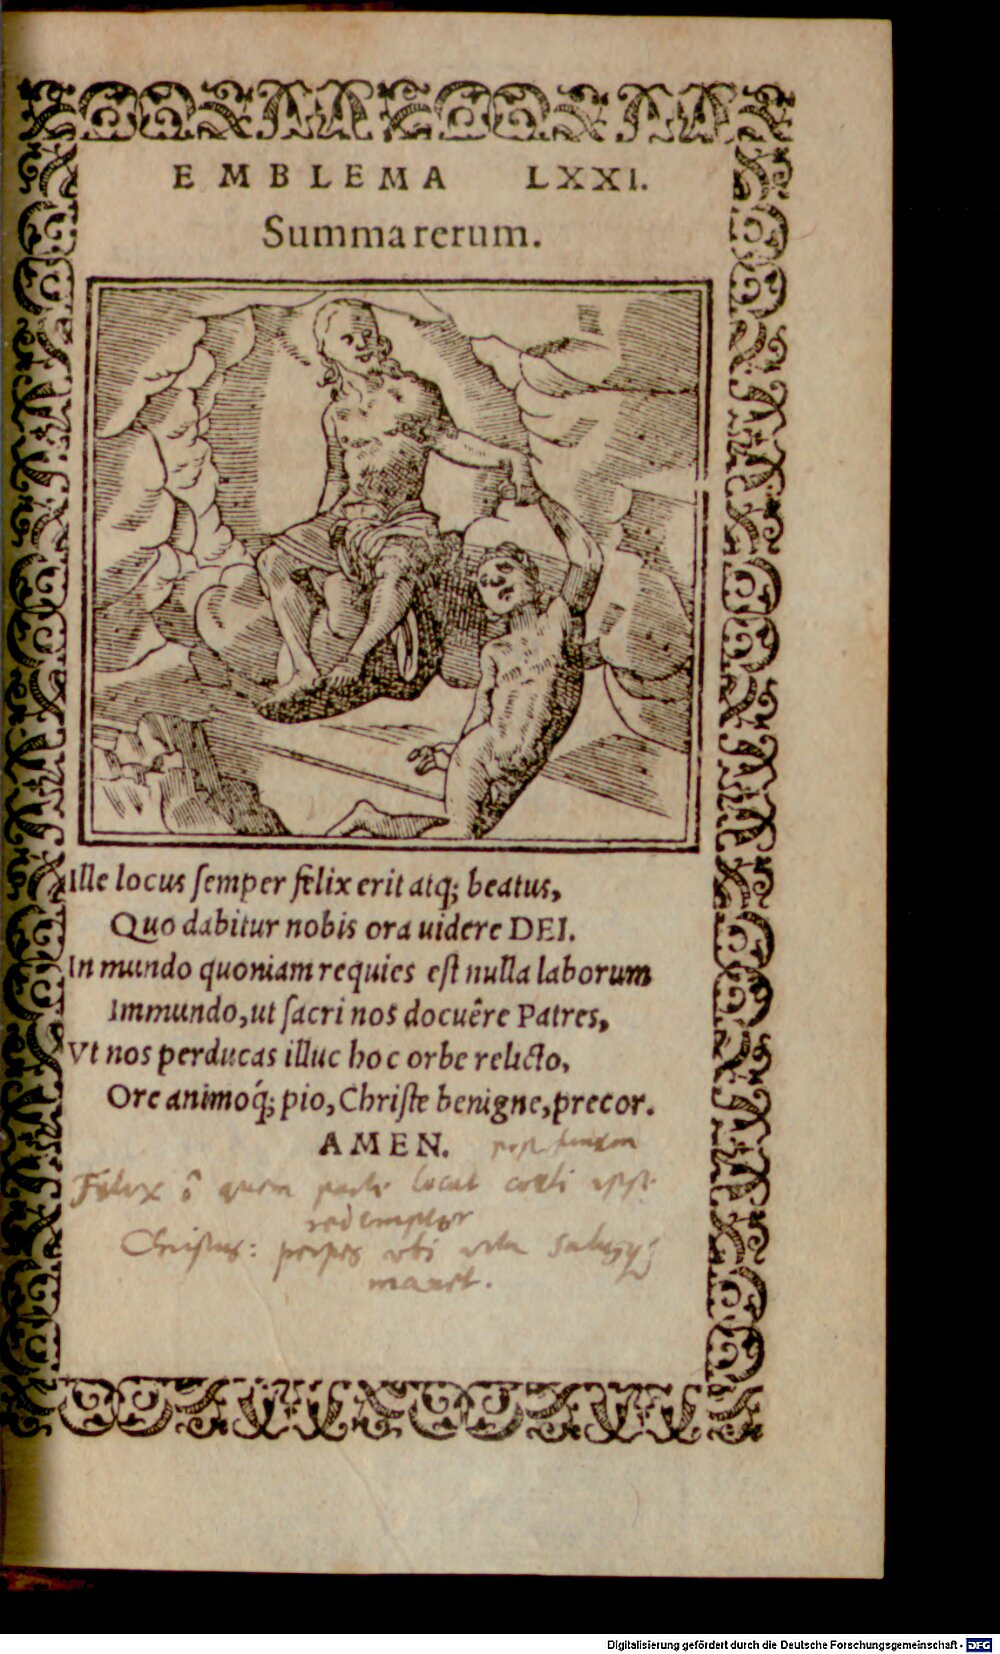 EMBLEMA LXXI.
Summa rerum.
Ille locus semper felix erit atq; beatus,
Quo dabitur nobis ora uidere DEI.
In mundo quoniam requies est nulla laborum
Immundo, ut sacri nos docuêre Patres,
Vt nos perducas illuc hoc orbe relicto,
Ore animoq́; pio, Christe benigne, precor.
AMEN.
Felix ô quem locat
redemptor
Christus: ubi
manet.
Digitalisierung gefördert durch die Deutsche Forschungsgemeinschaft - DFG